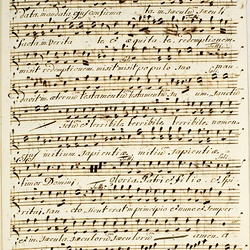 data mandata ejus confirma ta in saeculum saeculi
facta in veritate et aequitate redemptionem
misit redemptionem misit misit populo suo man
davit in aeternum testamentum testamentum suum Sanctum
et terribile terribile terribile nomen
initium sapientiae initium sapientiae
timor Domini gloria Patri et Filio et Spi
ritui san cto sicut erat in principio et nunc et semper
et in saecula saeculorum saeculorum amen a